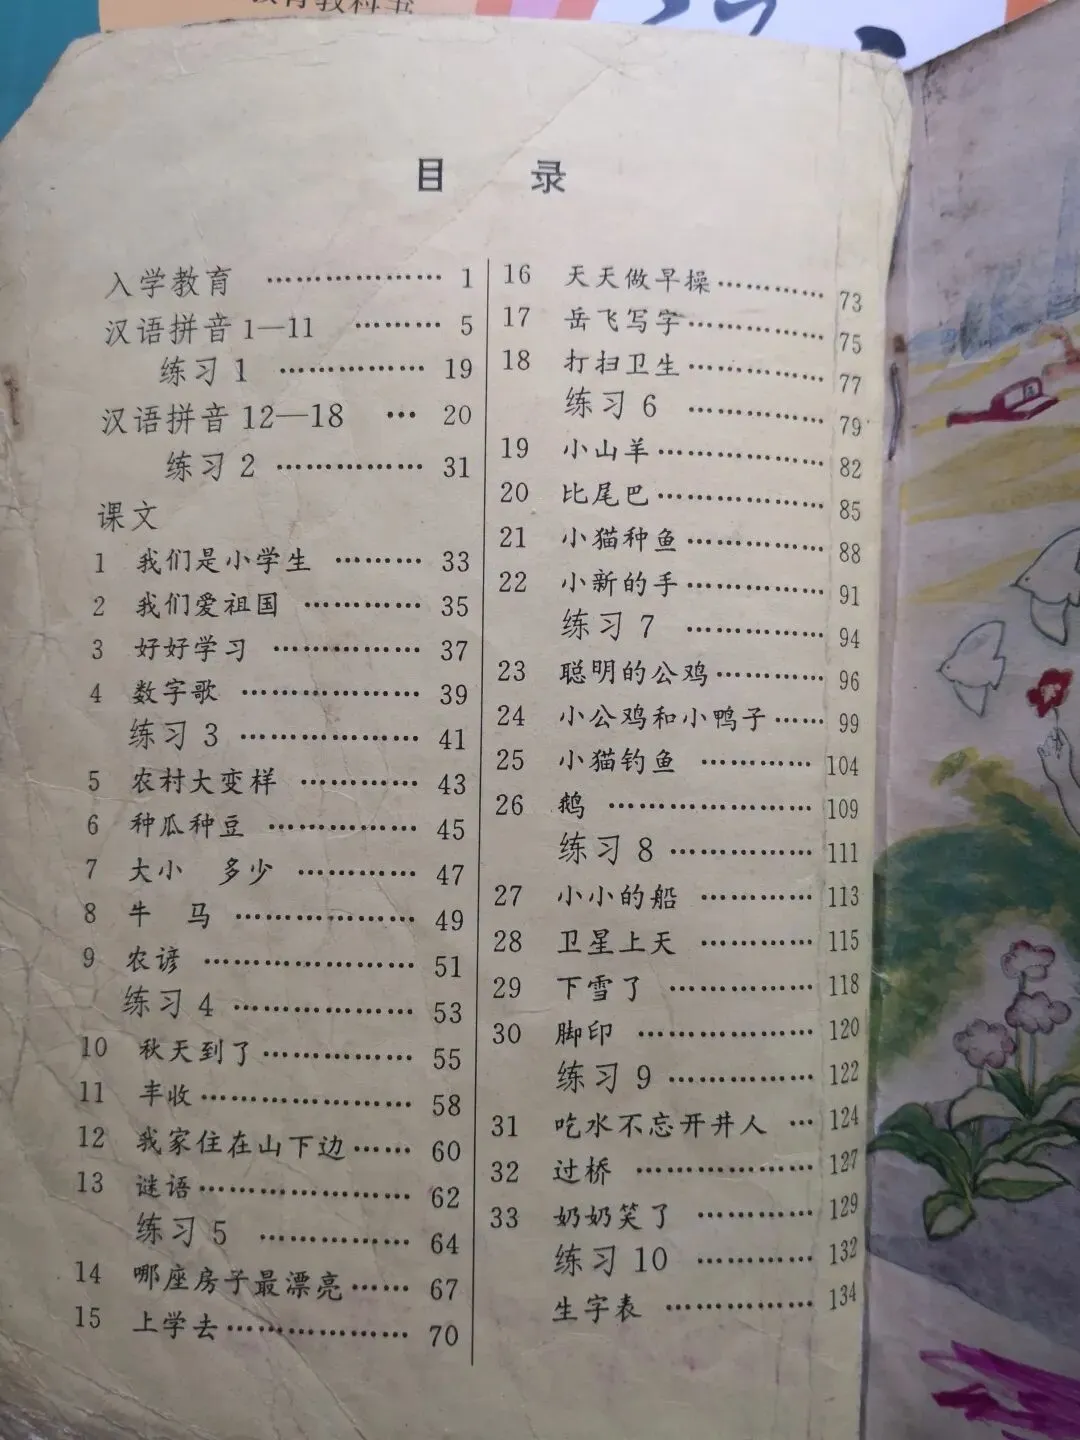 教育教科书
目 录
入学教育 ………………… 1
汉语拼音1—11 ……… 5
练习1 …………… 19
汉语拼音12—18 … 20
练习2 …………… 31
课文
1 我们是小学生 ……… 33
2 我们爱祖国 ………… 35
3 好好学习 …………… 37
4 数字歌 ……………… 39
练习3 ……………… 41
5 农村大变样 ………… 43
6 种瓜种豆 …………… 45
7 大小 多少 ………… 47
8 牛 马 ……………… 49
9 农谚 ………………… 51
练习4 ……………… 53
10 秋天到了 …………… 55
11 丰收 ………………… 58
12 我家住在山下边 …… 60
13 谜语 ………………… 62
练习5 …………… 64
14 哪座房子最漂亮 …… 67
15 上学去 ……………… 70
16 天天做早操 ………… 73
17 岳飞写字 …………… 75
18 打扫卫生 …………… 77
练习6 …………… 79
19 小山羊 ……………… 82
20 比尾巴 ……………… 85
21 小猫种鱼 …………… 88
22 小新的手 …………… 91
练习7 …………… 94
23 聪明的公鸡 ………… 96
24 小公鸡和小鸭子 …… 99
25 小猫钓鱼 ………… 104
26 鹅 ………………… 109
练习8 …………… 111
27 小小的船 ………… 113
28 卫星上天 ………… 115
29 下雪了 …………… 118
30 脚印 ……………… 120
练习9 …………… 122
31 吃水不忘开井人 … 124
32 过桥 ……………… 127
33 奶奶笑了 ………… 129
练习10 ………… 132
生字表 …………… 134